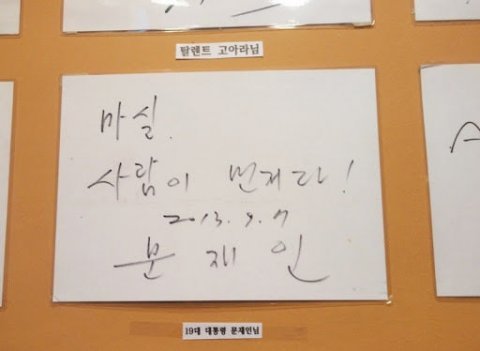 탈렌트 고아라님
마실.
사람이 먼저다!
2013. 9. 7
문재인
19대 대통령 문재인님